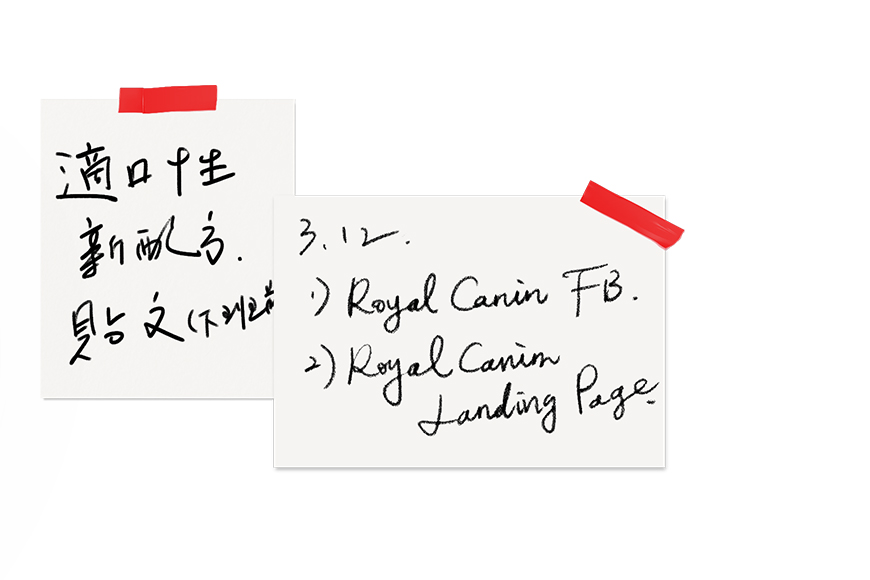 適口性
新配方.
貼文(下班前
3.12.
1) Royal Canin FB.
2) Royal Canin
Landing Page.